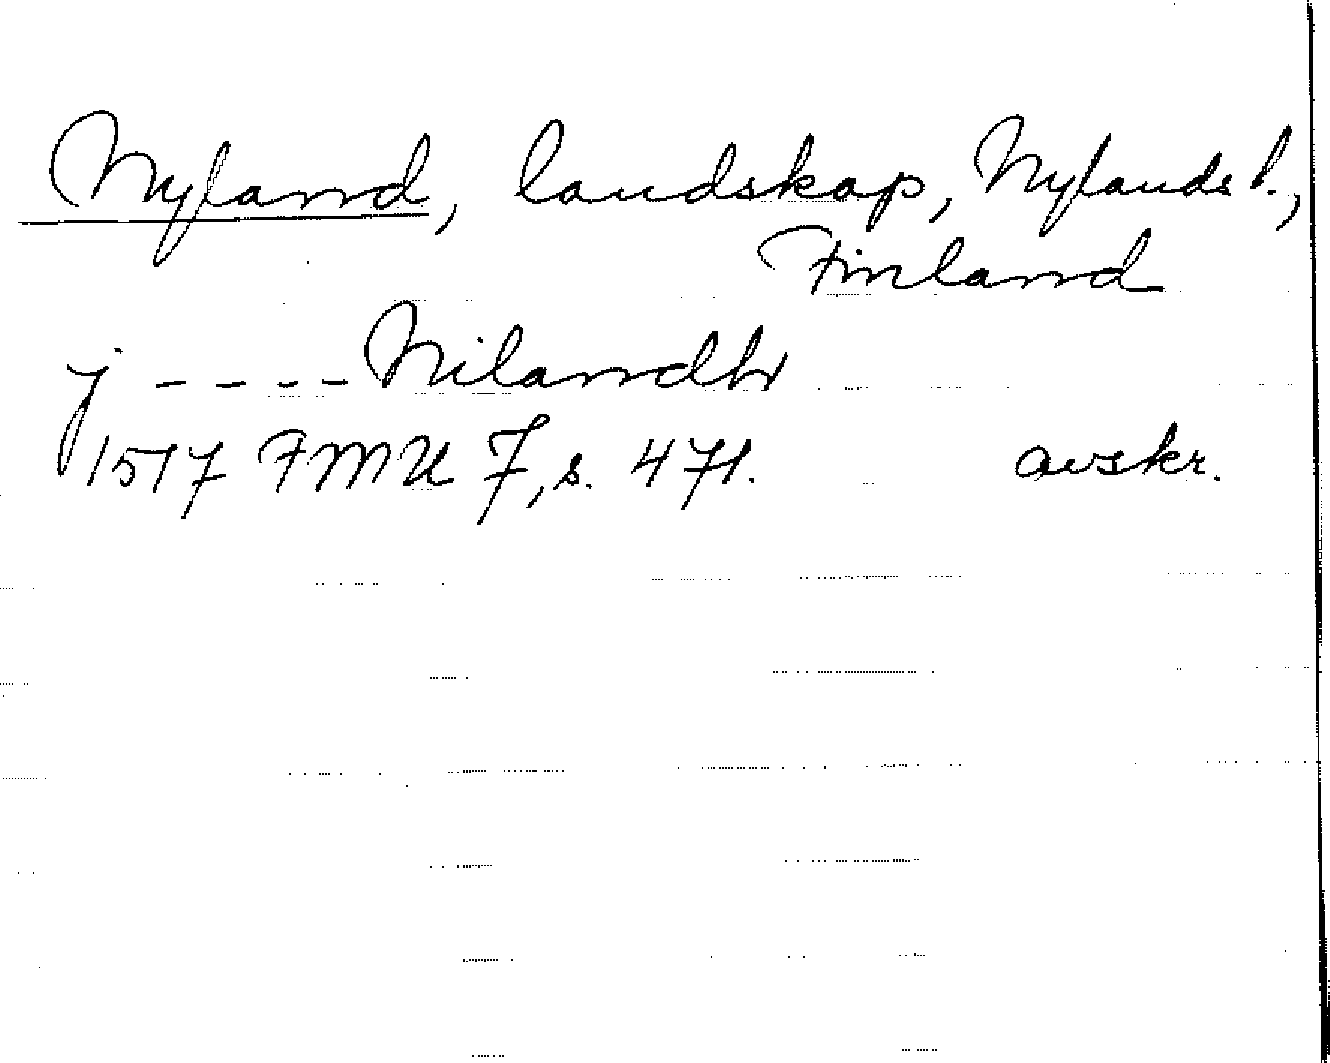 Nyland, landskap, Nylands l.,
Finland
j - - - - Nilandh
1517 FMU 7, s. 471. avskr.